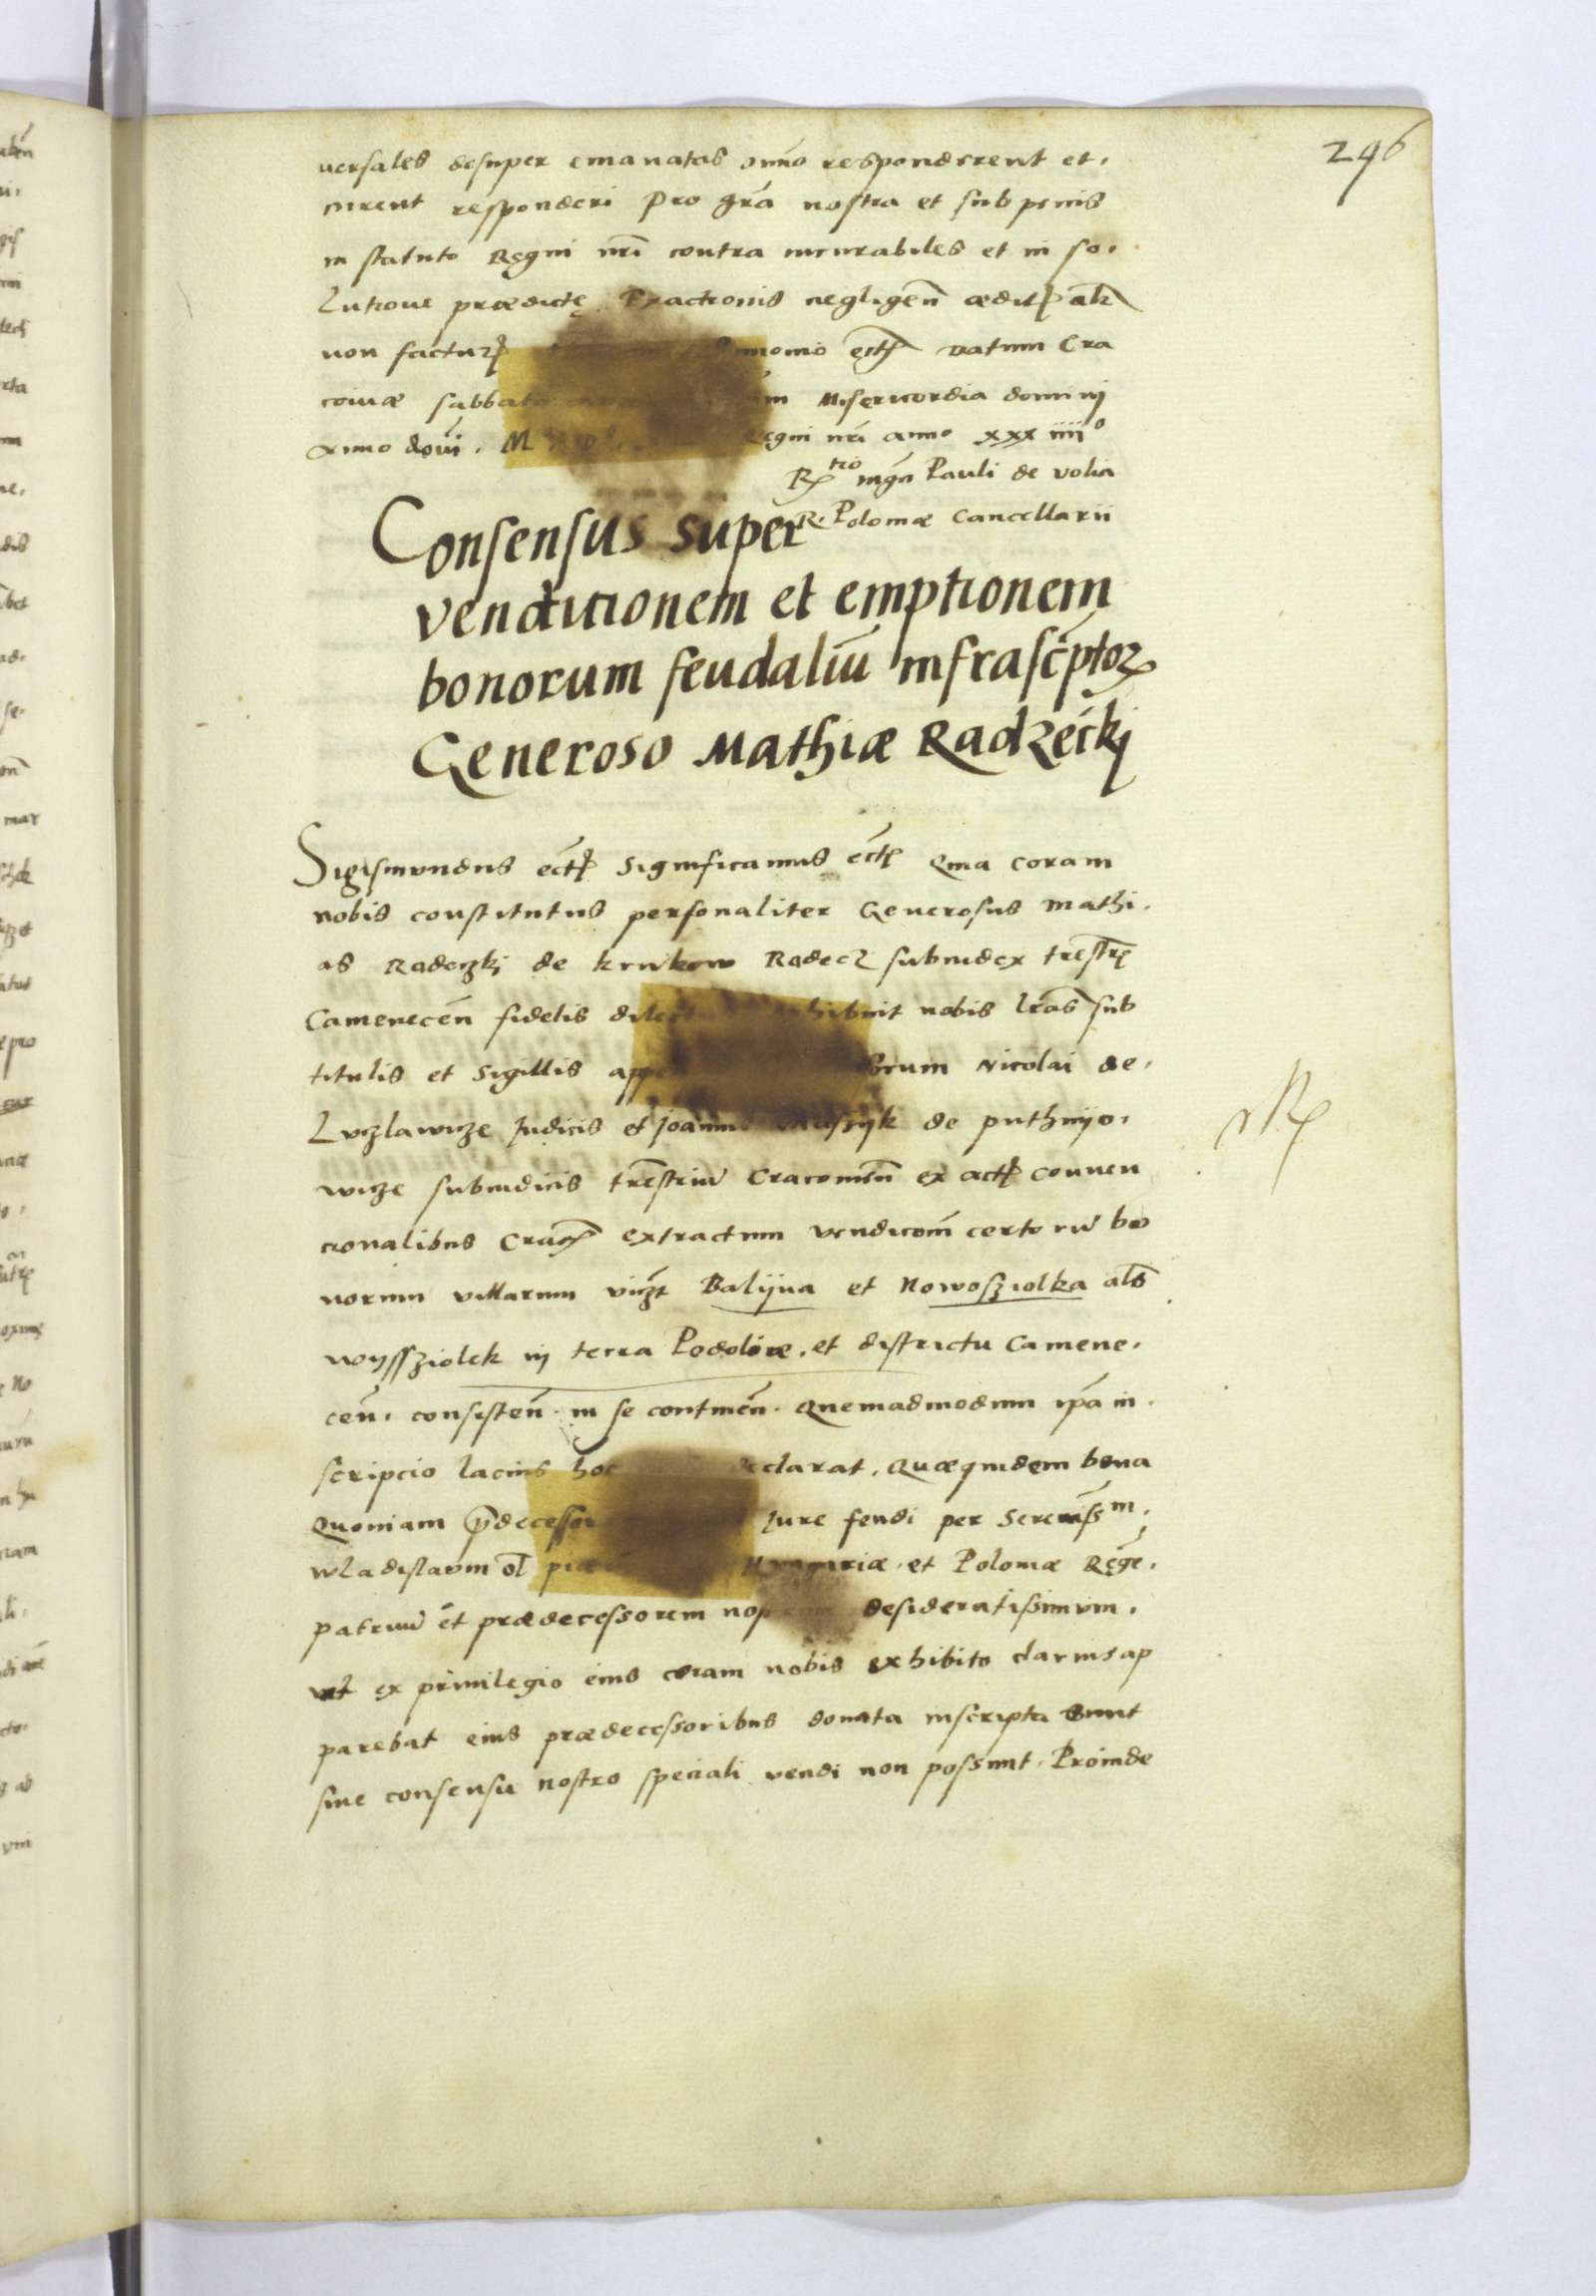 246
uersales desuper emanatas om̃o responderent et.
curent responderi Pro gr̃a nostra et sub penis
in statuto Regni nr̃i contra incurabiles et in so.
lutione prædictę Exactionis negligeñ ædit alr̃
non factur̨ monio ect̃ Datum Cra
coviæ sabbato Misericordia dominij
anno dom̃i. M Regni nr̃i anno xxxiiii°
R̨tio mg̃ci Pauli de volia
R. Poloniæ Cancellarii
Consensus super
venditionem et emptionem
bonorum feudaliũ infrasc̃ptoꝝ
Generoso Mathiæ Radzéckj
Sigismundus ect̃ significamus ect̃ Quia coram
nobis constitutus personaliter Generosus Mathi.
as Radeczkj de krukow Radecz subiudex tr̃estrę
Cameneceñ fidelis dilect hibuit nobis lr̃as sub
titulis et sigillis appe orum Nicolai de.
Luczlawicze Judicis et Joannis de puthnijo.
wicze subiudicis tr̃estriũ Cracouieñ ex act̃ conuen
cionalibus Crac̃ extractum vendicoñ certorũ bo
norum villarum vicz̃t Balijna et Nowosziolka als̃
wyssziolek in terra Podoliæ. et districtu Camene.
ceñ. consisteñ. in se contineñ. quemadmodum ip̃a in.
scripcio lacius hoc declarat. Quæquidem bona
Quoniam p̃decessor Jure feudi per Sereniss̃m.
wladislaum ol̃ piæ Hungariæ. et Poloniæ Rege̜.
patruũ et prædecessorem nostrum desideratissimum.
vt ex priuilegio eius coram nobis exhibito clarius ap
parebat eius prædecessoribus donata inscripta sunt
sine consensu nostro speciali vendi non possunt. Proinde